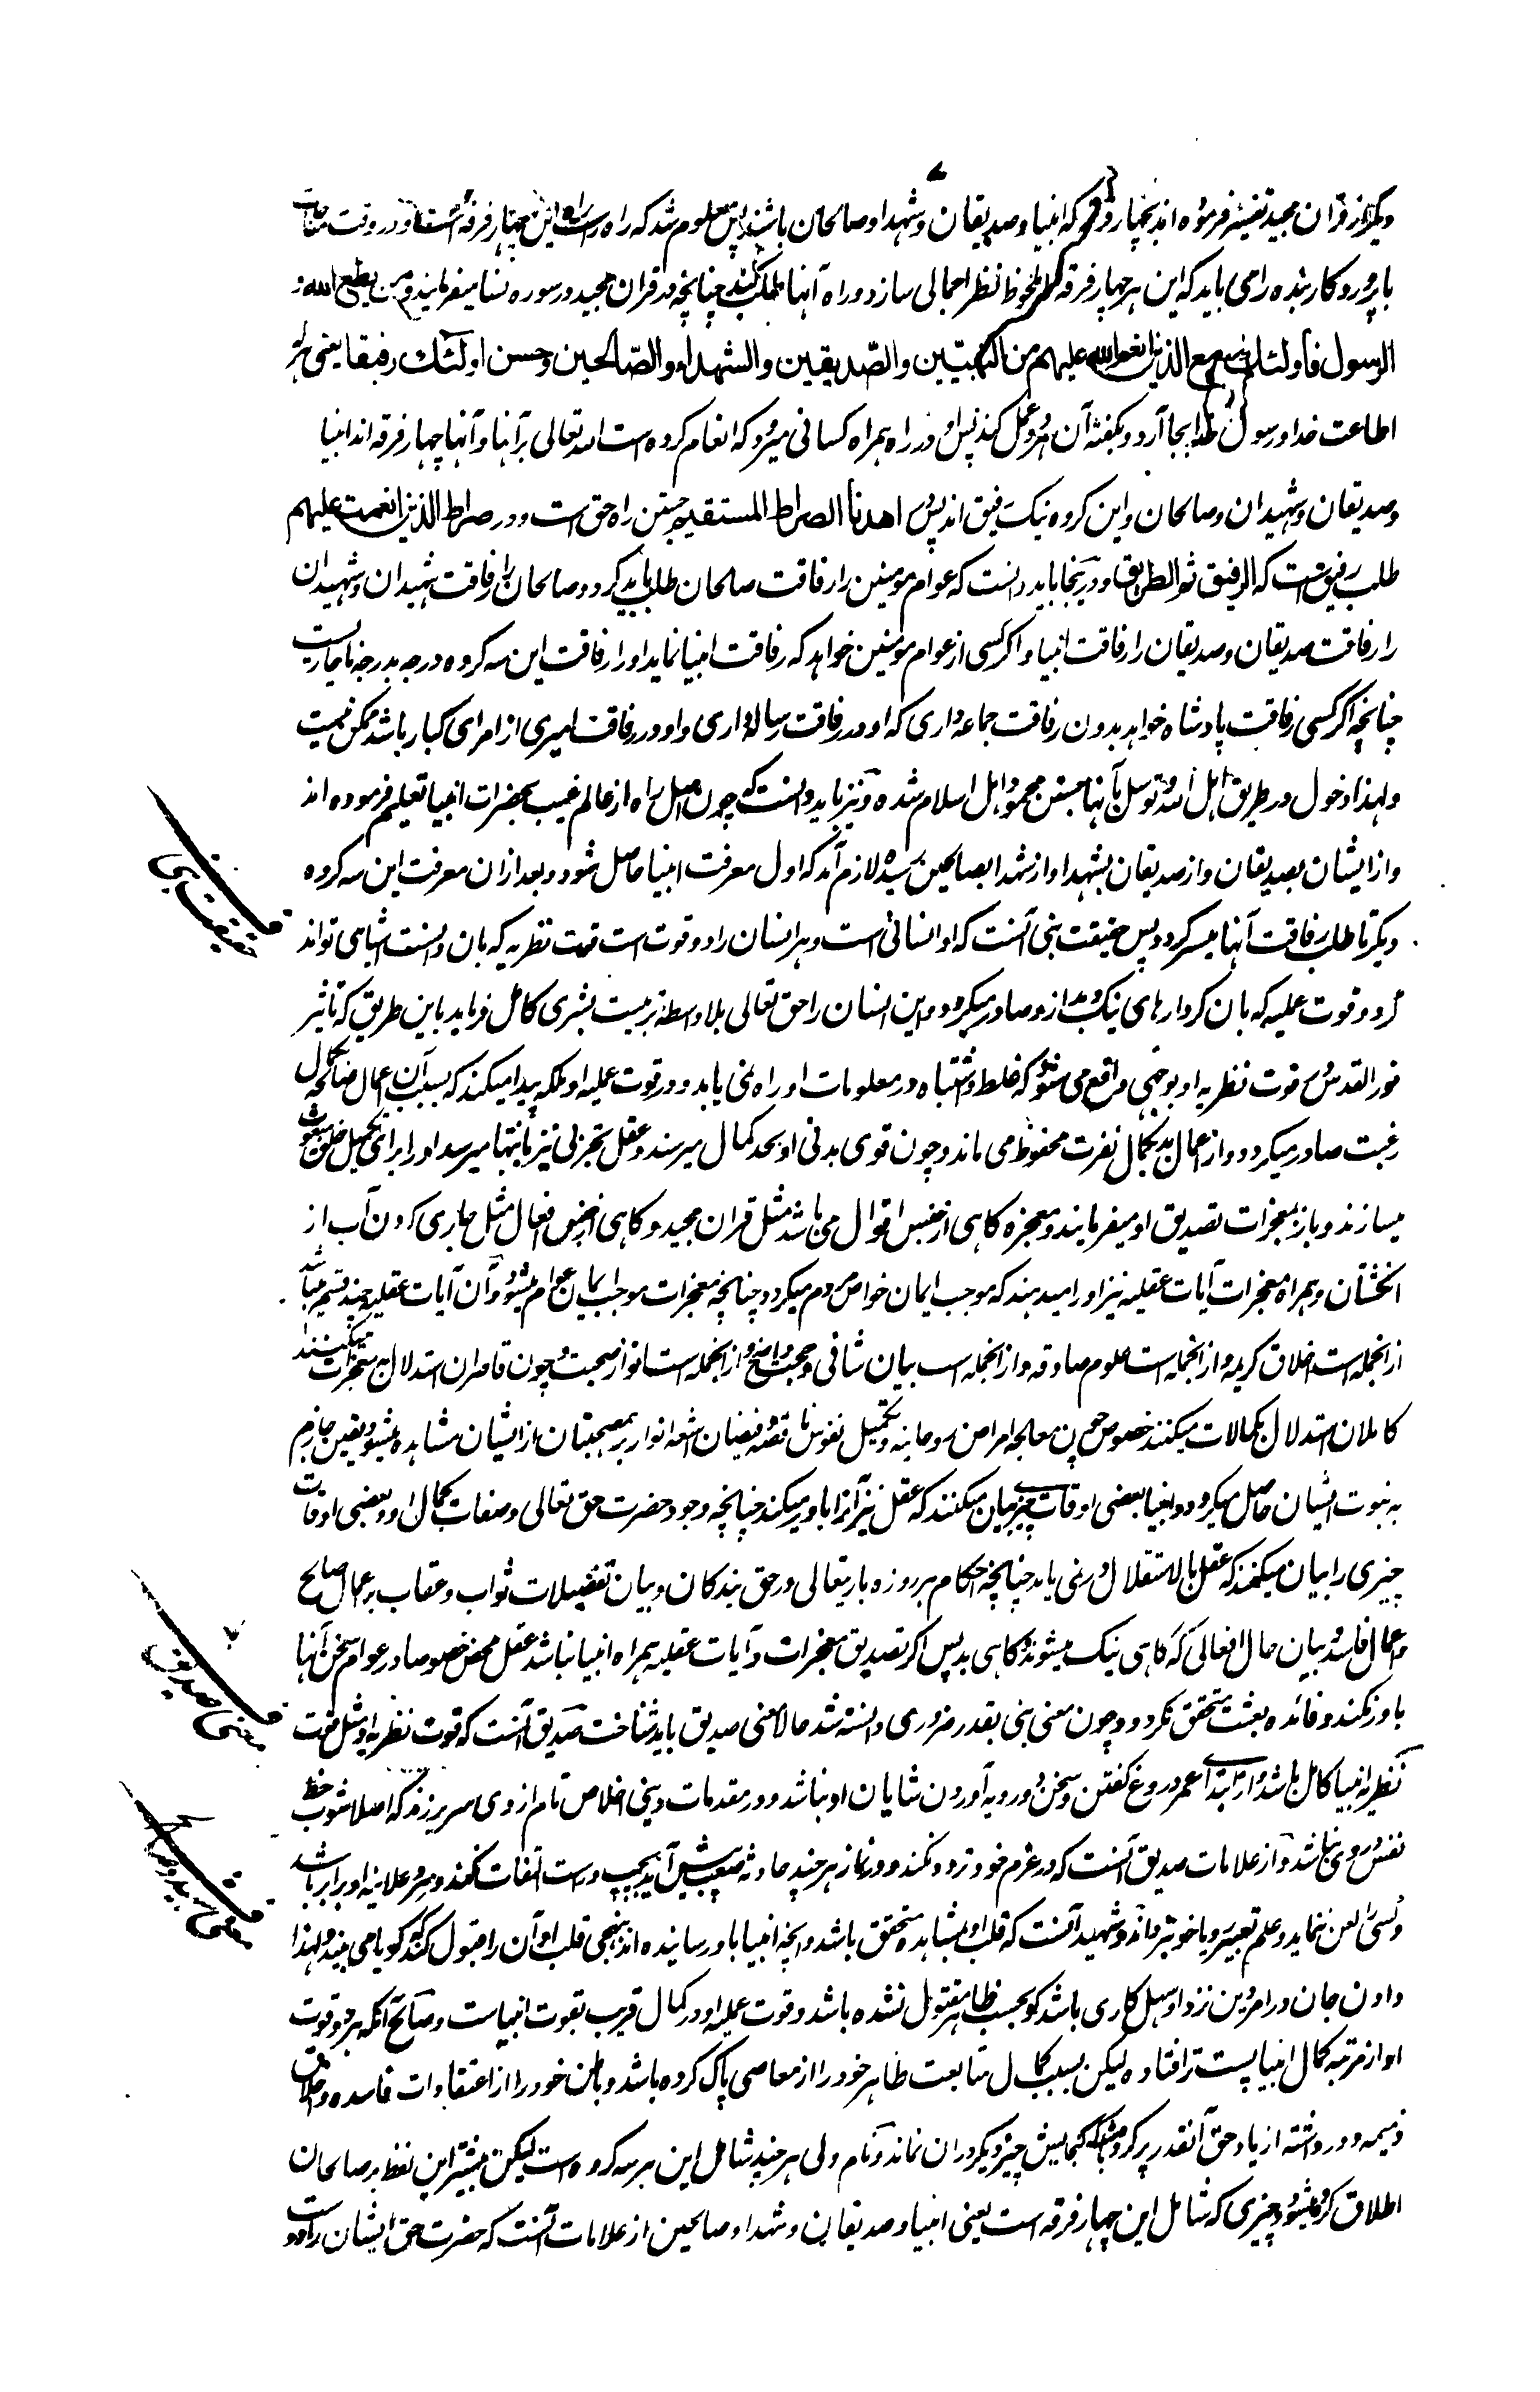 دیگر از قران مجید تفسیر فرموده اند بچهار فرقه که انبیا و صدیقان و شهدا و صالحان باشند پس معلوم شد که راه راست راه این چهار فرقه است و در وقت مناجات
با پروردگار بنده را می باید که این هر چهار فرقه را ملحوظ نظر اجمالی سازد و راه آنها طلب کند چنانچه در قران مجید در سوره نسا میفرمایند و من یطع الله و
الرسول فاولئک مع الذین انعم الله علیهم من النبیین والصّدیقین والشهداء والصّالحین وحسن اولئک رفیقا یعنی هر که
اطاعت خدا و رسول خدا بجا آرد و بگفته آن هر دو عمل کند پس او در راه همراه کسانی میرود که انعام کرده است الله تعالی بر آنها و آنها چهار فرقه اند انبیا
و صدیقان و شهیدان و صالحان و این گروه نیک رفیق اند پس در اهدنا الصراط المستقیم جستن راه حق است و در صراط الذین انعمت علیهم
طلب رفیق است که الرفیق ثم الطریق و در اینجا باید دانست که عوام مومنین را رفاقت صالحان طلب باید کرد و صالحان را رفاقت شهیدان و شهیدان
را رفاقت صدیقان و صدیقان را رفاقت انبیا و اگر کسی از عوام مومنین خواهد که رفاقت انبیا نماید او را رفاقت این سه گروه درجه بدرجه ناچار است
چنانچه اگر کسی رفاقت پادشاه خواهد بدون رفاقت جماعه داری که او در رفاقت رساله داری و او در رفاقت امیری از امرای کبار باشد ممکن نیست
و لهذا دخول در طریق اهل الله و توسل بآنها جستن معمول اهل اسلام شده و نیز باید دانست که چون اصل راه از عالم غیب بحضرات انبیا تعلیم فرموده اند
و از ایشان بصدیقان و از صدیقان بشهدا و از شهدا بصالحین رسیده لازم آمد که اول معرفت انبیا حاصل شود و بعد ازان معرفت این سه گروه
حقیقت نبی
دیگر تا طلب رفاقت آنها میسر گردد پس حقیقت نبی آنست که او انسانی است و هر انسان را دو قوت است قوت نظریه که بان دانست اشیا می تواند
کرد و قوت عملیه که بان کردارهای نیک و بد از و صادر میگردد و این انسان را حق تعالی بلا واسطه تربیت بشری کامل فرماید باین طریق که تاثیر
نور القدس در قوت نظریه او بوجهی واقع می شود که غلط و اشتباه در معلومات او راه نمی یابد و در قوت عملیه او ملکه پیدا میکند که بسبب آن اعمال صالحه بکمال
رغبت صادر میگردد و از اعمال بد بکمال نفرت محفوظ می ماند و چون قوی بدنی او بحد کمال میرسند و عقل تجربی نیز بانتها میرسد او را برای تکمیل خلق مبعوث
میسازند و باز بمعجزات تصدیق او میفرمایند و معجزه گاهی از جنس اقوال می باشد مثل قران مجید و گاهی از جنس افعال مثل جاری کردن آب از
انگشتان و همراه معجزات آیات عقلیه نیز او را میدهند که موجب ایمان خواص مردم میگردد چنانچه معجزات موجب ایمان عوام میشود و آن آیات عقلیه چند قسم میباشد
از انجمله است اخلاق کریمه و از انجمله است علوم صادقه و از انجمله است بیان شافی و حجت واضح و از انجمله است انوار صحبت و چون قاصران استدلال بمعجزات میکنند
کاملان استدلال بکمالات میکنند خصوص چون معالجه امراض روحانیه و تکمیل نفوس ناقصه و فیضان اشعه انوار بر همصحبتان از ایشان مشاهده میشود یقین جازم
به نبوت ایشان حاصل میگردد و انبیا بعضی اوقات چیزی بیان میکنند که عقل نیز آنرا باور میکند چنانچه وجود حضرت حق تعالی و صفات کمال او و بعضی اوقات
چیزی را بیان میکنند که عقل بالاستقلال در نمی یابد چنانچه احکام هر روزه باریتعالی در حق بندگان و بیان تفضیلات ثواب و عقاب بر اعمال صالح
و اعمال فاسد و بیان حال افعالی که گاهی نیک میشوند و گاهی بد پس اگر تصدیق معجزات و آیات عقلیه همراه انبیا نباشد عقل محض خصوصا در عوام سخن آنها
معنی صدیق
باور نکند و فائده بعثت متحقق نگردد و چون معنی نبی بقدر ضروری دانسته شد حالا معنی صدیق باید شناخت صدیق آنست که قوت نظریه او مثل قوت
نظریه انبیا کامل باشد و از ابتدای عمر دروغ گفتن و سخن دو رویه آوردن شایان او نباشد و در مقدمات دینی اخلاص تام از وی سر بر زند که اصلا مشوب بحظ
نفس در وی نباشد و از علامات صدیق آنست که در عزم خود تردد نکند و در نماز هر چند حادثه صعب پیش آید بچپ و راست التفات نکند و سر و علانیه او برابر باشد
معنی شهید و صالح
و کسی را لعن ننماید و علم تعبیر رویا خوب بداند و شهید آنست که قلب او بمشاهده متحقق باشد و انچه انبیا باو رسانیده اند بنهجی قلب او آن را قبول کند که گویا می بیند و لهذا
دادن جان در امر دین نزد او سهل کاری باشد گو بحسب ظاهر مقتول نشده باشد و قوت عملیه او در کمال قریب بقوت انبیاست و صالح آنکه هر دو قوت
او از مرتبه کمال انبیا پست تر افتاده لیکن بسبب کمال متابعت ظاهر خود را از معاصی پاک کرده باشد و باطن خود را از اعتقادات فاسده و اخلاق
ذمیمه دور داشته از یاد حق آنقدر پر کرده باشد که گنجایش چیز دیگر دران نماند و نام ولی هر چند شامل این هر سه گروه است لیکن بیشتر این لفظ بر صالحان
اطلاق کرده میشود و چیزی که شامل این چهار فرقه است یعنی انبیا و صدیقان و شهدا و صالحین از علامات آنست که حضرت حق ایشان را دوست